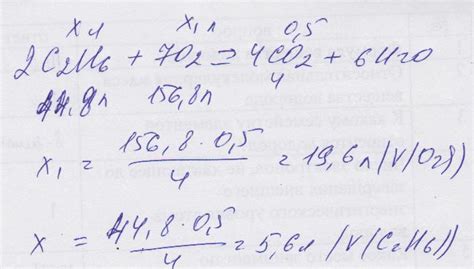 x л x₁ л 0,5
2C₂H₆ + 7O₂ = 4CO₂ + 6H₂O
44,8л 156,8л 4
x₁ = 156,8 · 0,5 / 4 = 19,6 л (V(O₂))
x = 44,8 · 0,5 / 4 = 5,6 л (V(C₂H₆))